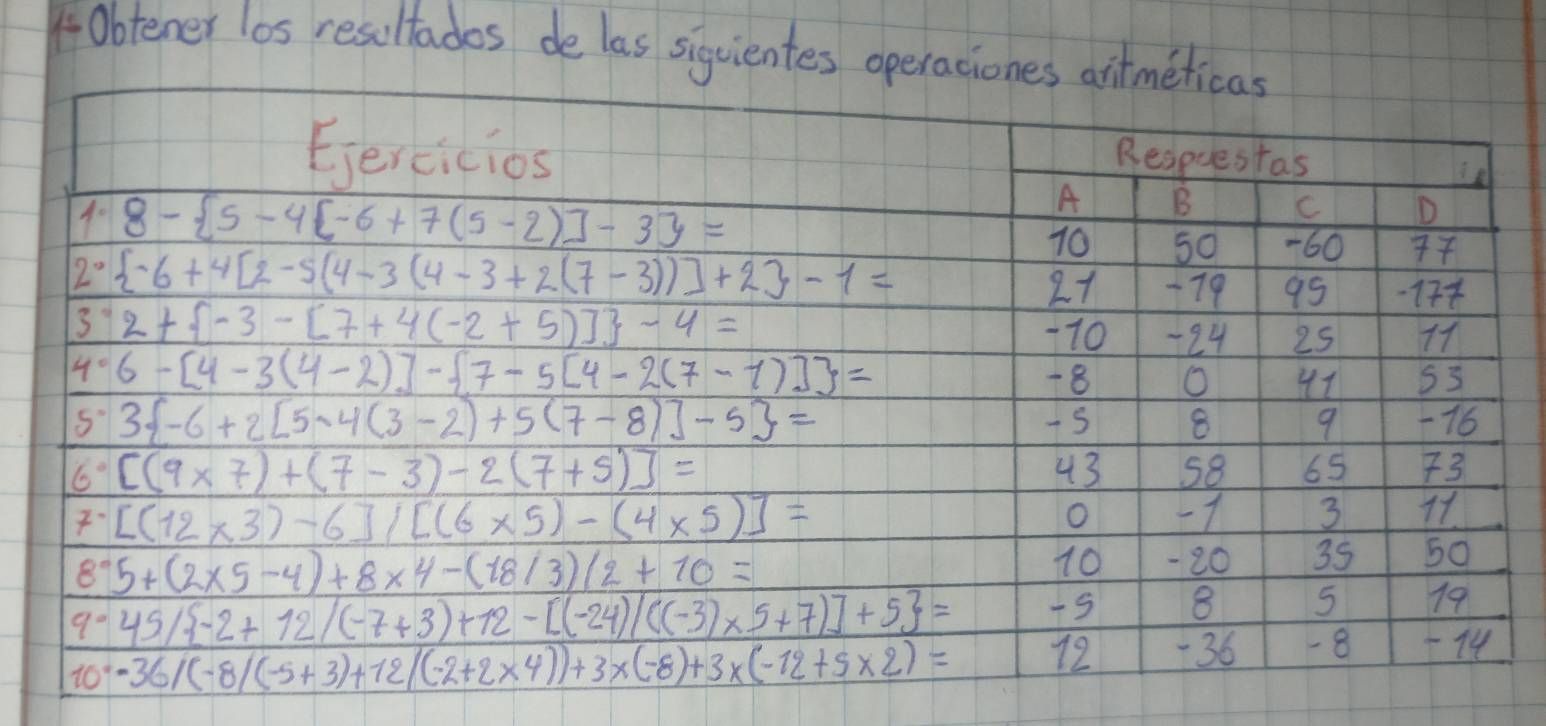 1- Obtener los resultados de las siguientes operaciones aritméticas
Ejercicios Respuestas
A B C D
1- 8 - {5 - 4[-6 + 7(5 - 2)] - 3} = 10 50 -60 77
2- {-6 + 4[2 - 5(4 - 3(4 - 3 + 2(7 - 3))] + 2} - 1 = 21 -19 95 -177
3- 2 + {-3 - [7 + 4(-2 + 5)]} - 4 = -10 -24 25 11
4- 6 - [4 - 3(4 - 2)] - {7 - 5[4 - 2(7 - 1)]} = -8 0 41 53
5- 3{-6 + 2[5 - 4(3 - 2) + 5(7 - 8)] - 5} = -5 8 9 -16
6- [(9 x 7) + (7 - 3) - 2(7 + 5)] = 43 58 65 73
7- [(12 x 3) - 6] / [(6 x 5) - (4 x 5)] = 0 -1 3 11
8- 5 + (2 x 5 - 4) + 8 x 4 - (18 / 3) / 2 + 10 = 10 -20 35 50
9- 45 / {-2 + 12 / (-7 + 3) + 12 - [(-24) / ((-3) x 5 + 7)] + 5} = -5 8 5 19
10- -36 / (-8 / (-5 + 3) + 12 / (-2 + 2 x 4)) + 3 x (-8) + 3 x (-12 + 5 x 2) = 12 -36 -8 -14